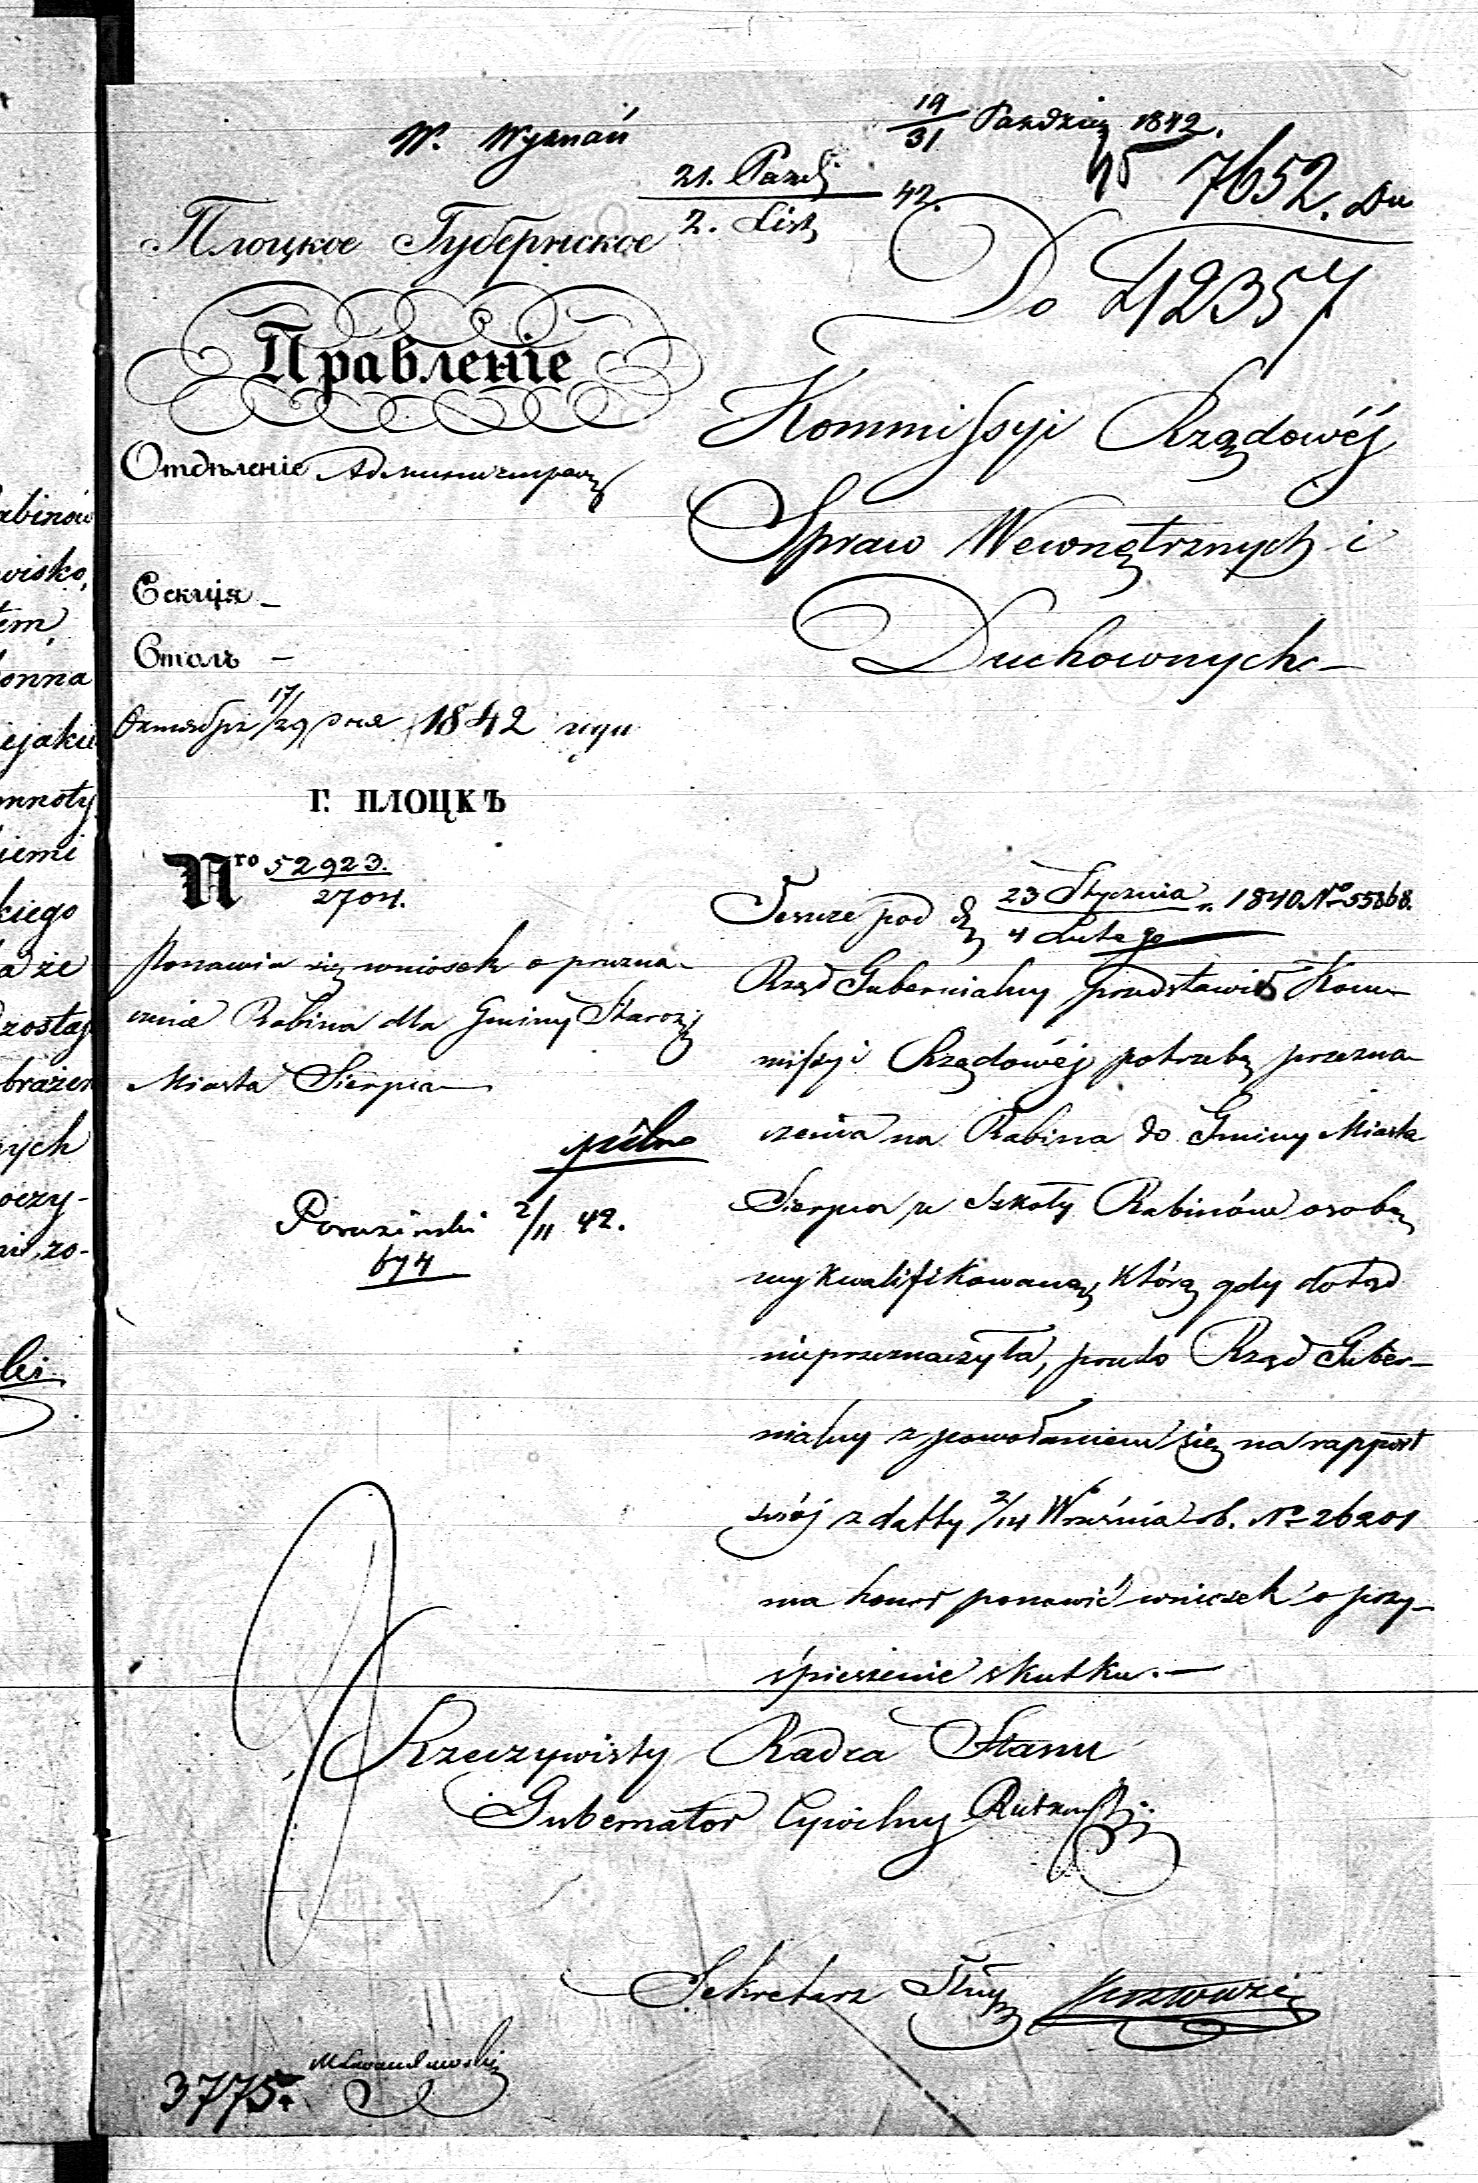 W. Wyznań
19/31 Paździer 1842.
21. Paźdz. / 2. List 42.
7652. Du
42357
Плоцкое Губернское
Правленіе
Отдѣленіе Администрац
Секція —
Столъ —
Октября 17/29 дня 1842 года
Г. ПЛОЦКЪ
Nro 52923. / 2704.
Ponawia się wniosek o przezna-
czenie Rabina dla Gminy Staroz
Miasta Sierpca
pilno
2/11 42.
674
Do
Kommissyi Rządowéj
Spraw Wewnętrznych i
Duchownych —
Jeszcze pod d. 23 Stycznia / 4 Lutego r. 1840 No 55868.
Rząd Gubernialny przedstawił Kom-
missyi Rządowéj potrzebę przezna-
czenia na Rabina do Gminy Miasta
Sierpca ze Szkoły Rabinów osobę
wykwalifikowaną, którą gdy dotąd
nieprzeznaczyła, przeto Rząd Guber-
nialny z powołaniem się na rapport
swój z datty 2/14 Września r. b. No 26201
ma honor ponawić wniosek o przy-
śpieszenie skutku. —
Rzeczywisty Radca Stanu
Gubernator Cywilny
Sekretarz
3775.